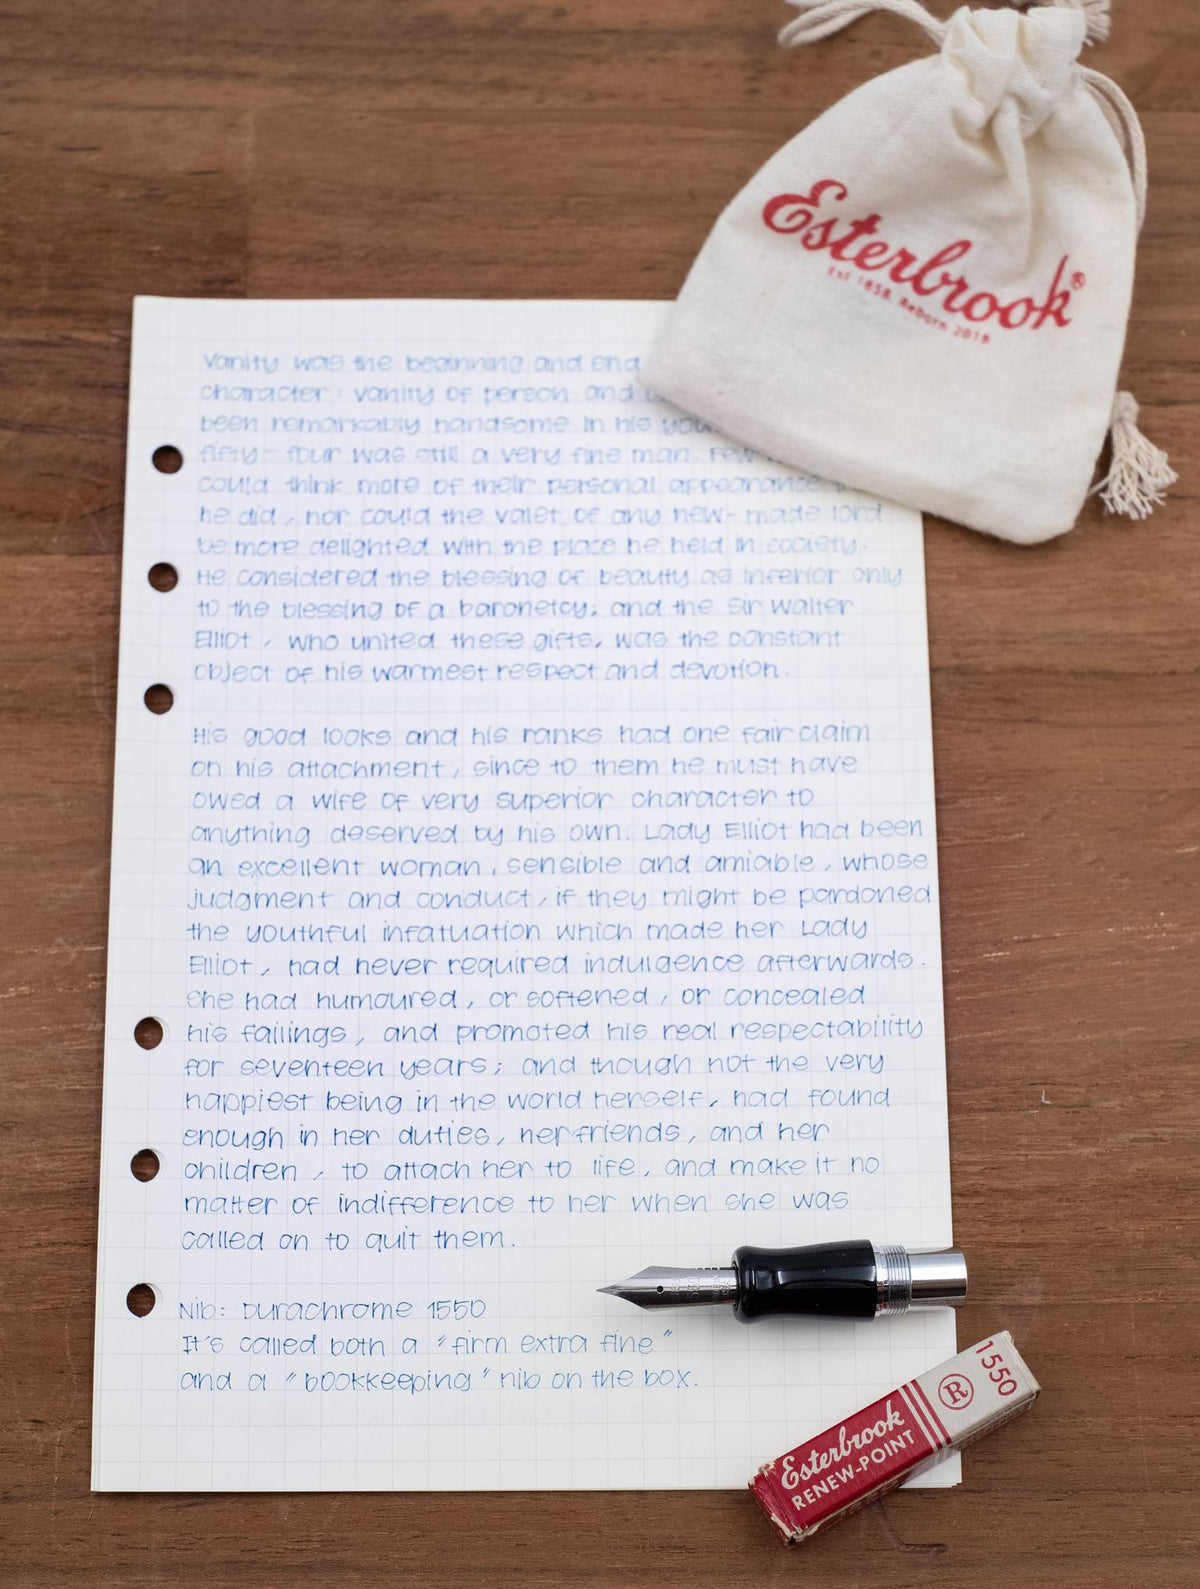 Esterbrook®
Est 1858. Reborn 2018
Vanity was the beginning and end
character: vanity of person and
been remarkably handsome in his you
fifty-four was still a very fine man. Few
could think more of their personal appearance
he did, nor could the valet of any new-made lord
be more delighted with the place he held in society.
He considered the blessing of beauty as inferior only
to the blessing of a baronetcy; and the Sir Walter
Elliot, who united these gifts, was the constant
object of his warmest respect and devotion.
His good looks and his ranks had one fair claim
on his attachment, since to them he must have
owed a wife of very superior character to
anything deserved by his own. Lady Elliot had been
an excellent woman, sensible and amiable, whose
judgment and conduct, if they might be pardoned
the youthful infatuation which made her Lady
Elliot, had never required indulgence afterwards.
She had humoured, or softened, or concealed
his failings, and promoted his real respectability
for seventeen years; and though not the very
happiest being in the world herself, had found
enough in her duties, her friends, and her
children, to attach her to life, and make it no
matter of indifference to her when she was
called on to quit them.
Nib: Durachrome 1550
It's called both a "firm extra fine"
and a "bookkeeping" nib on the box.
1550
®
Esterbrook
RENEW-POINT